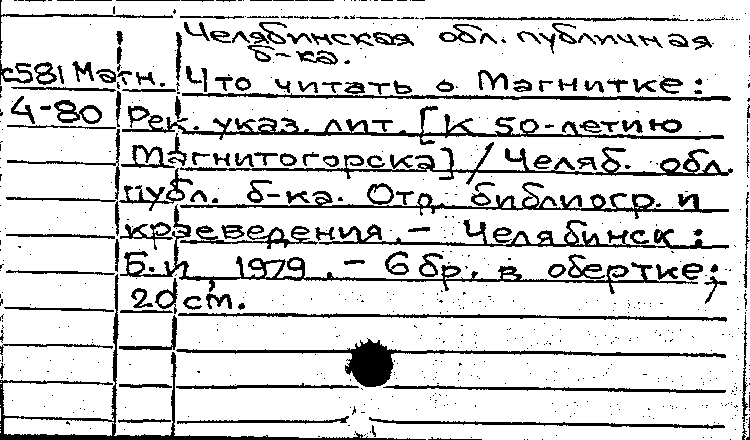 Челябинская обл. публичная
б-ка.
с581 Магн. Что читать о Магнитке:
4-80 Рек. указ. лит. [К 50-летию
Магнитогорска] / Челяб. обл.
публ. б-ка. Отд. библиогр. и
краеведения. - Челябинск:
Б.и, 1979. - 6 бр. в обертке;
20 см.